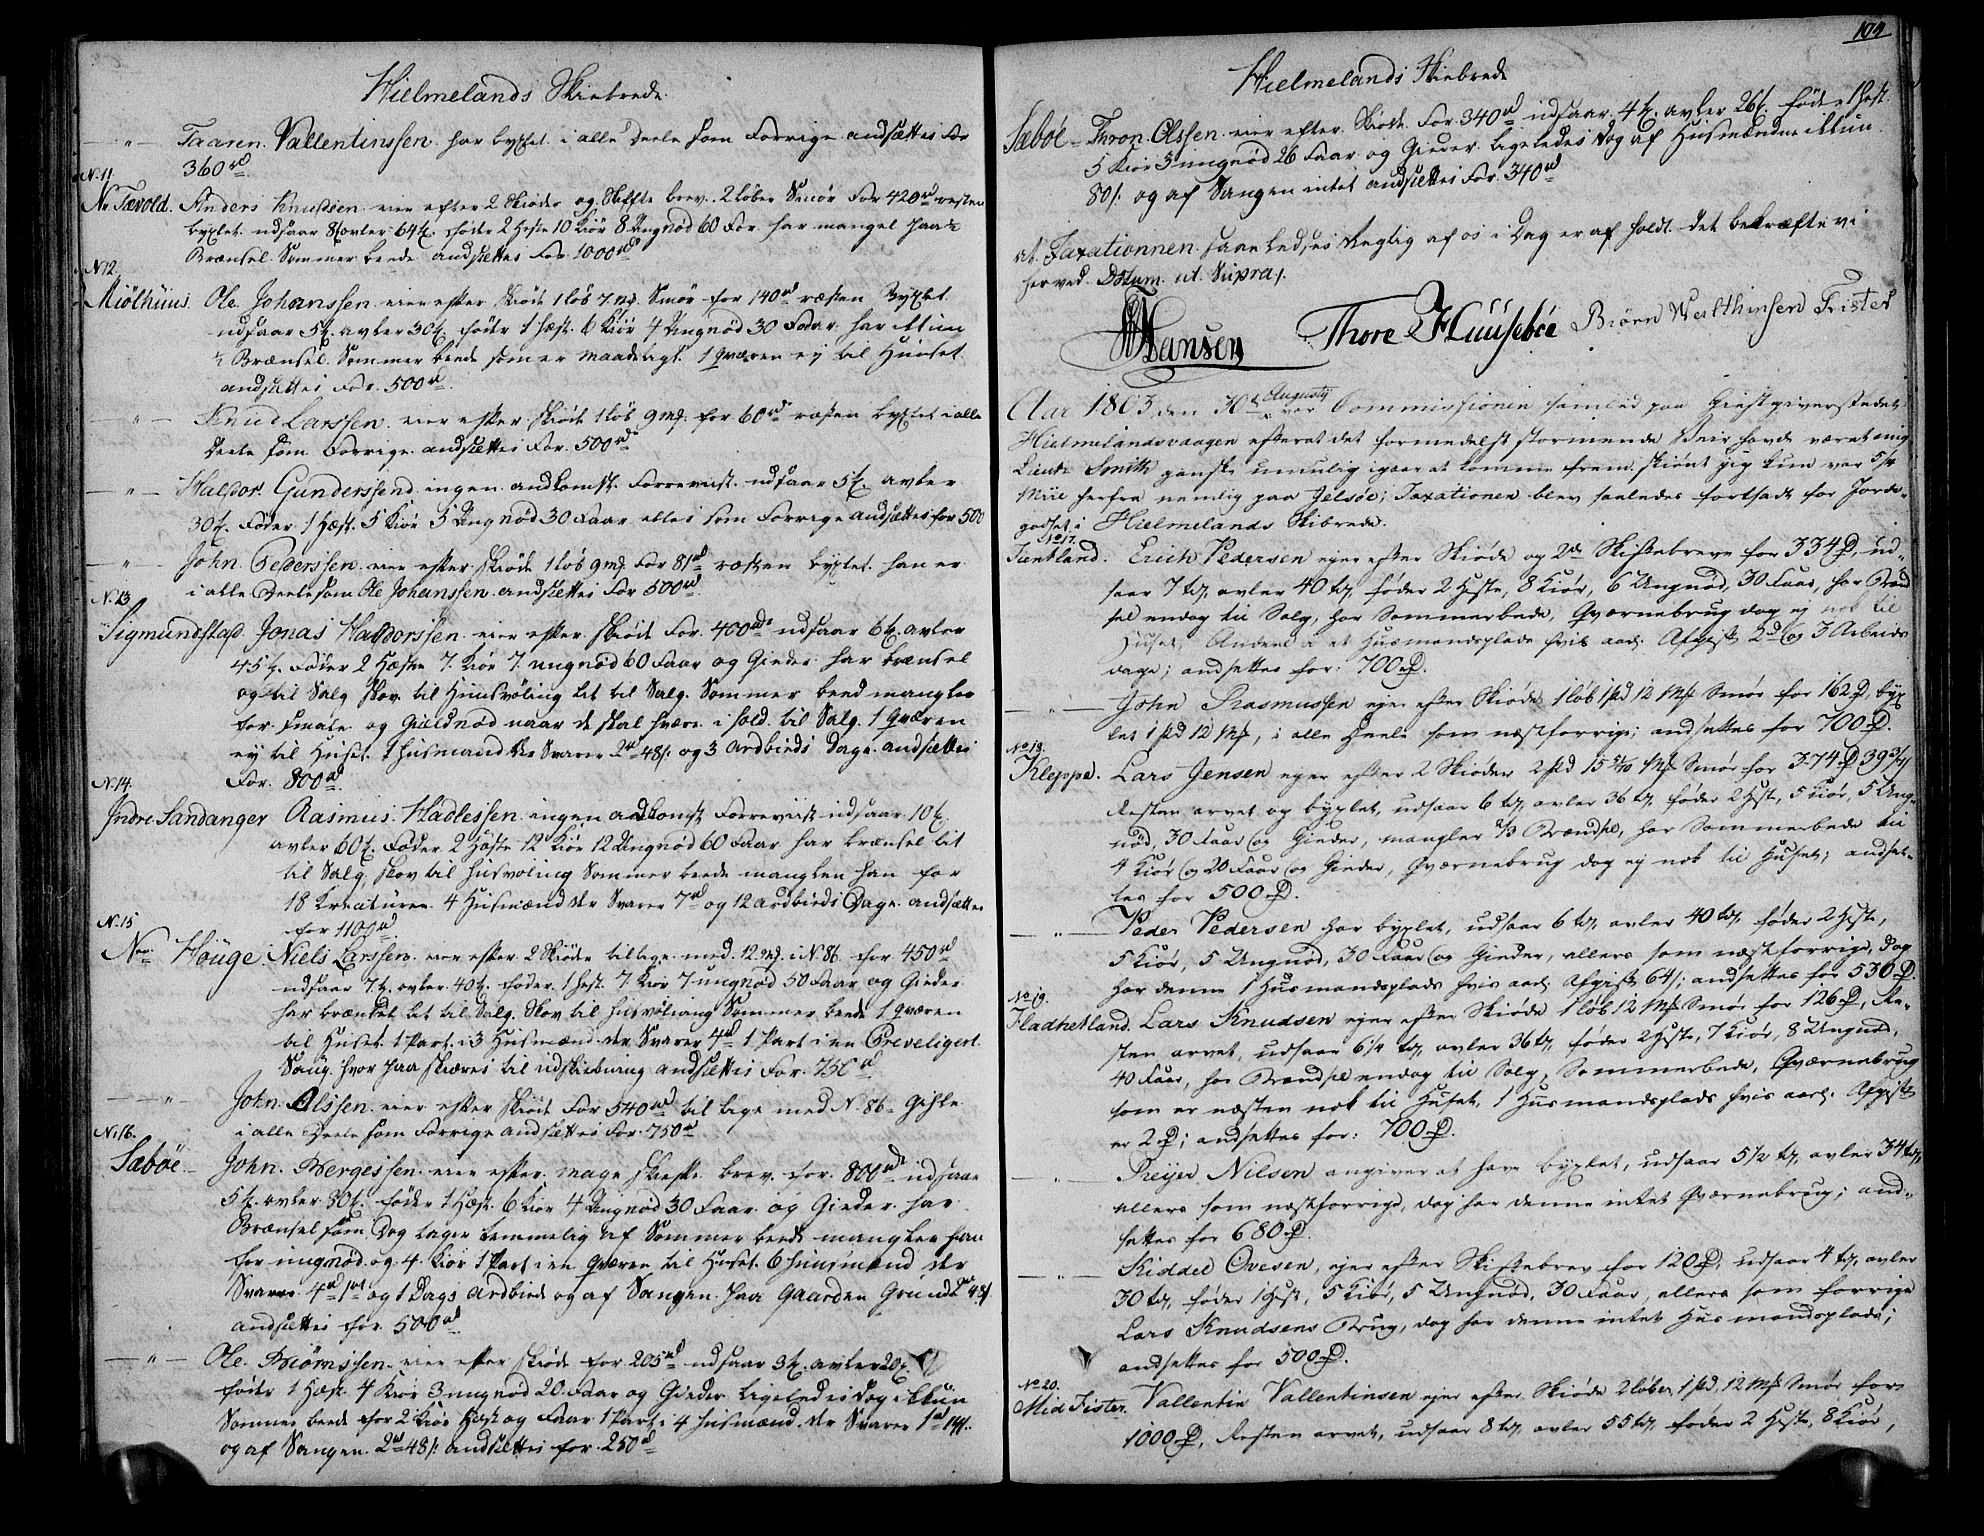 Hielmelands Skiebrede.
— " — Taaren Vallentinssen har bygt i alle Deele som Forrige andsættes for
360 rd
No 11.
N. Tævold. Anders Knudsen eier efter 2 Skiøder og Skifte brev 2 løber Smør For 420 rd resten
bygt. udsaar 8 t avler 64 t. føder 2 Heste 10 Kiør 8 Ungnød 60 For. har mangel paa
Brænsel Sommer beede andsættes For 1000 rd
N 12.
Miölhuus Ole Johanssen eier efter Skiöde 1 löb 7 mk. Smör for 140 rd resten Bygt
udsaar 5 t. avler 30 t. föder 1 Hest 6 Kiör 4 Ungnöd 30 Faar har ikkun
½ Brænsel. Sommer beede som er maadeligt. 1 Qværen ey til Huuset
andsættes For. 500 rd
— " — Knud Larssen eier efter Skiöde 1 löb 9 mk. for 60 rd resten bygt i alle
Deele som Forrige andsættes For. 500 rd
— " — Haldor Gunderssend ingen andkomst Forreviist. udsaar 5 t. avler
30 t. Föder 1 Hest 5 Kiör 5 Ungnöd 30 Faar ellers som Forrige andsættes for 500
— " — John Pederssen eier efter Skiöde 1 löb 9 mk. For 81 rd resten bygt. han er
i alle Deele som Ole Johanssen andsættes For 500 rd
N. 13
Sigmundstad Jonas Haldorssen eier efter Skiöde For. 400 rd udsaar 6 t. avler
45 t. Föder 2 Heste 7 Kiör 7 ungnöd 60 Faar og Gieder har brænsel
og til Salg Skov til Huusvöling let til Salg. Sommer beed mangler
for smale og Gieldnöd naar de skal være i hold til Salg. 1 Qværen
ey til Huset. 1 Huusmand der Svarer 2 rd 48 s. og 3 Ardbieds Dage. andsættes
For. 800 rd
N. 14.
Indre Sandanger Rasmus Hadlessen ingen adkomst Forreviist udsaar 10 t.
avler 60 t. Föder 2 Heste 12 Kiör 12 Ungnöd 60 Faar har brænsel lit
til Salg, Skov til Husvöling Sommer beede manglen han for
18 Kreaturer. 4 Husmænd der Svarer 7 rd og 12 ardbieds Dage. andsættes
for 1100 rd
N. 15
Höuge. Niels Larssen eier efter 2 Skiöde tillige med 12 mk. i N. 86 for 450 rd
udsaar 7 t. avler 40 t. föder 1 Hest 7 Kiör 7 ungnöd 50 Faar og Gieder
har brændsel let til Salg. Skov til husvöling Sommer beede 1 Qværen
til Huset. 1 Part i 3 Husmænd der Svarer 4 rd 1 Part i en Preveligert
Saug hvor paa skiæres til udskiibning andsættes For. 750 rd
— " — John Olssen eier efter Skiöde For 540 rd til lige med N. 86
i alle Deele som Forrige andsættes For. 750 rd
N. 16.
Sæböe John Bergessen eier efter mage Skifte brev for 800 rd udsaar
5 t. avler 30 t. föder 1 Hest 6 Kiör 4 Ungnöd 30 Faar og Gieder har
Brænsel som Dog tager temmelig af Sommer beede mangler han
for ungnöd og 4 Kiör 1 Part i en Qværen til Huset. 6 huusmænd der
Svarer 4 rd og 1 Dags ardbied og af Saugen paa Gaarden Grund 48 s
andsættes for 500 rd
— " — Ole Biörnssen eier efter Skiöde for 205 rd udsaar 3 t. avler 20 t.
föder 1 Hest 4 Kiör 3 ungnöd 20 Faar og Gieder ligeledes Dog ikkun
Sommer beede for 2 Kiör Hest og Faar 1 Part i 4 Husmænd der Svarer 1 rd
og af Saugen 2 rd 48 s. andsættes for 250 rd
104
Hielmelands Skiebrede
Sæböe — Thron Olssen eier efter Skiöde For. 340 rd udsaar 4 t. avler 26 t. föder 1 Hest
5 Kiör 3 ungnöd 26 Faar og Gieder ligeledes Dog af Husmændene ikkun
80 s. og af Saugen intet andsættes For. 340 rd
at Taxationnen saaledes Rigtig af os i Dag er af holdt det bekræfte vi
herved Datum ut Supra.
Hansen Thore Huusebøe Biørn Fister
Aar 1803, den 30te Augusty var Commissionen samled paa Giestgiverstedet
Hielmelandsvaagen efterat det formedelst stormende Veir havde været mig
Lieut: Smith ganske umuelig igaar at komme frem, skiønt jeg kun var 5/4
Miil herfra nemlig paa Jelsøe; Taxationen blev saaledes fortsadt for Jorde-
godset i Hielmelands Skibrede.
No 17.
Tuntland. Erich Pedersen eyer efter Skiøde og 2de Skiftebreve for 334 rd, ud-
saar 7 tr, avler 40 tr, føder 2 Heste, 8 Kiør, 6 Ungnød, 30 Faar, har Brænd
sel endog til Salg, har Sommerbede, Qværnebrug dog ej nok til
Huset, Andeel i et Huusmandsplads hvis aarl. Afgift 2 rd og 3 Arbeids
dage; andsettes for: 700 rd.
— " — John Rasmussen eyer efter Skiøde 1 løb 1 pd 12 Mk Smør for 162 rd, byg
let 1 pd 12 Mk, i alle Deele som næstforrige; andsettes for 700 rd.
No 18.
Kleppe. Lars Jensen eyer efter 2 Skiøder 2 pd 15 5/10 Mk Smør for 374 rd 39 3/4 s
Resten arvet og byglet, udsaar 6 tr, avler 36 tr, føder 2 Heste, 5 Kiør, 5 Ung-
nød, 30 Faar og Gieder, mangler 2/3 Brændsel, har Sommerbede til
4 Kiør og 20 Faar og Gieder, Qværnebrug dog ej nok til Huset; andset-
tes for 500 rd.
— " — Peder Pedersen har byglet, udsaar 6 tr, avler 40 tr, føder 2 Heste,
5 Kiør, 5 Ungnød, 30 Faar og Gieder, ellers som næstforrige, dog
har denne 1 Husmandsplads hvis aarl. Afgift 64 s; andsettes for 530 rd.
No 19.
Fladhetland. Lars Knudsen eyer efter Skiøde 1 løb 12 Mk Smør for 126 rd, Re-
sten arvet, udsaar 6 1/2 tr, avler 36 tr, føder 2 Heste, 7 Kiør, 8 Ungnød,
40 Faar, har Brændsel endog til Salg, Sommerbede, Qværnebrug
som er næsten nok til Huset, 1 Husmandsplads hvis aarl. Afgift
er 2 rd; andsettes for: 700 rd.
— " — Reijer Nilsen angiver at have byglet, udsaar 5 1/2 tr, avler 34 tr,
ellers som næstforrige, dog har denne intet Qværnebrug; and-
settes for 680 rd.
— " — Kiddel Ovesen, eyer efter Skiftebrev for 120 rd, udsaar 4 tr, avler
30 tr, føder 1 Hest, 5 Kiør, 5 Ungnød, 30 Faar, ellers som forrige
Lars Knudsens Brug, dog har denne intet Husmandsplads;
andsettes for 500 rd.
No 20.
Mid Fister. Vallentin Vallentinsen eyer efter Skiøde 2 løber, 1 pd, 12 Mk Smør for
1000 rd, Resten arvet, udsaar 8 tr, avler 55 tr, føder 2 Heste, 8 Kiør,